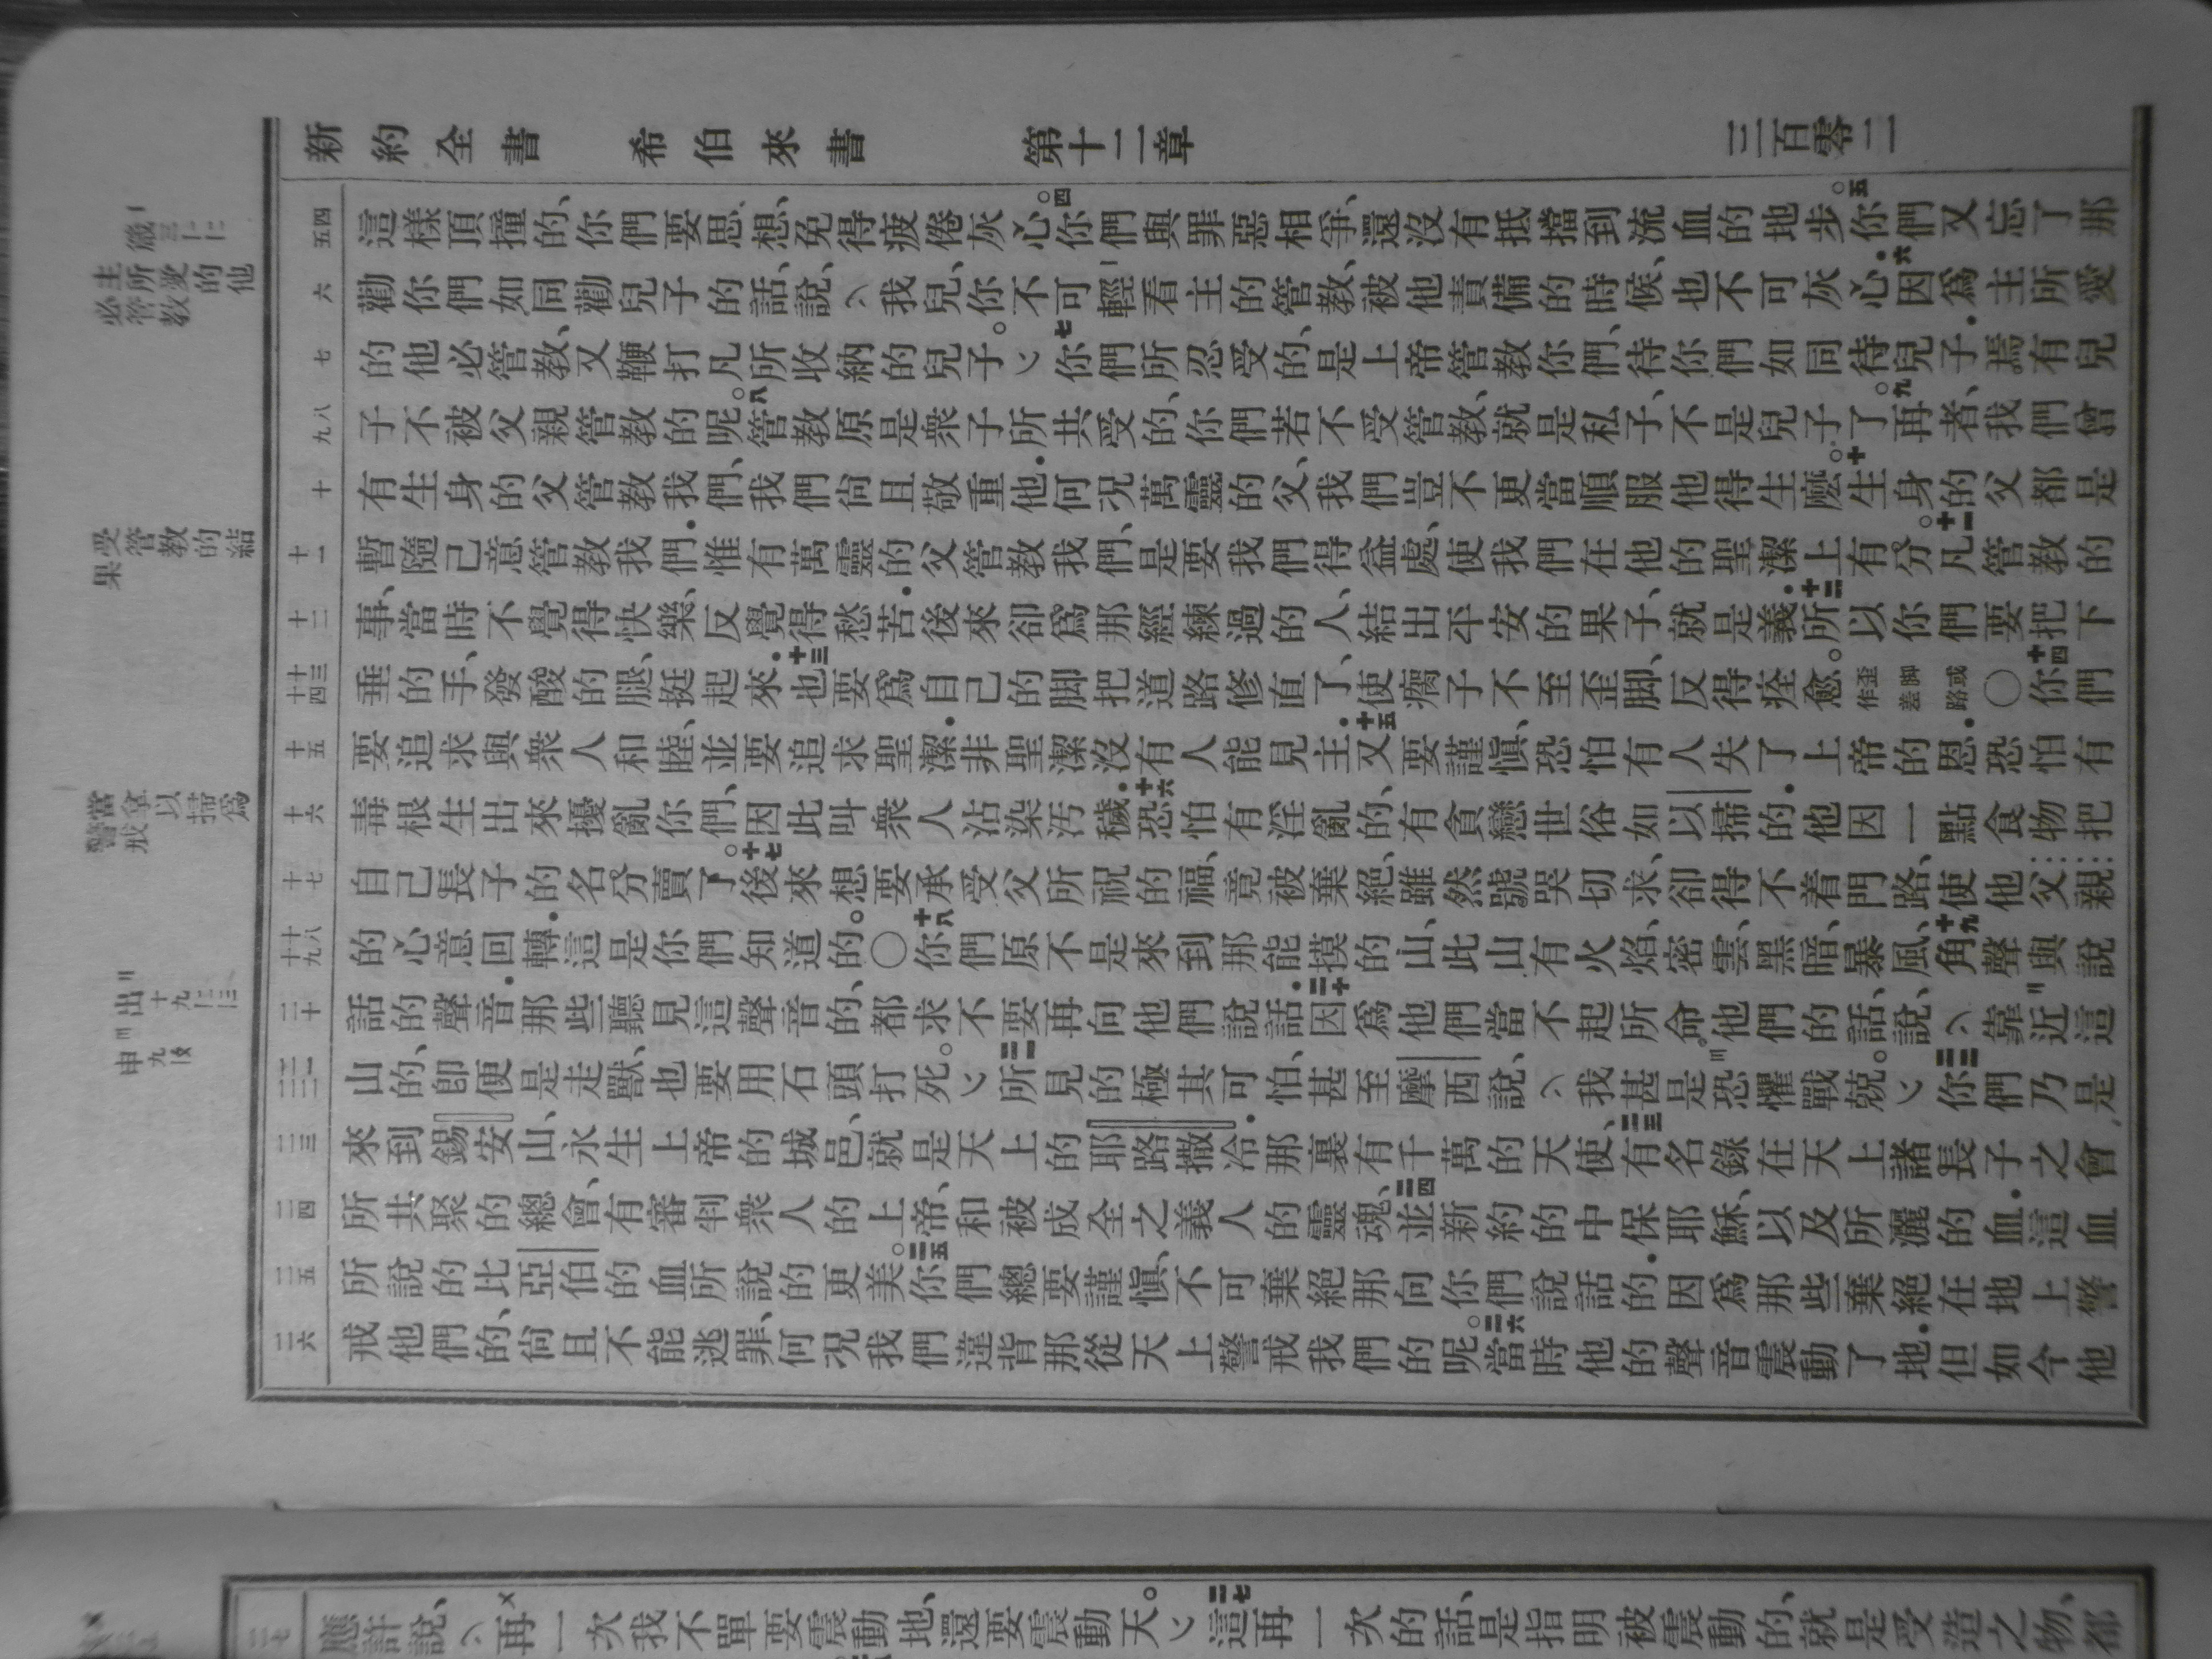 新約全書 希伯來書 第十二章 三百零二
這樣頂撞的、你們要思想、免得疲倦灰心。四你們與罪惡相爭、還沒有抵擋到流血的地步。五你們又忘了那
勸你們如同勸兒子的話、說、我兒、你不可輕看主的管教、被他責備的時候、也不可灰心．六因爲主所愛
的他必管教、又鞭打凡所收納的兒子。七你們所忍受的、是上帝管教你們、待你們如同待兒子．焉有兒
子不被父親管教的呢。八管教原是衆子所共受的、你們若不受管教、就是私子、不是兒子了。九再者、我們曾
有生身的父管教我們、我們尙且敬重他．何況萬靈的父、我們豈不更當順服他得生麽。十生身的父都是
暫隨己意管教我們．惟有萬靈的父管教我們、是要我們得益處、使我們在他的聖潔上有分。十一凡管教的
事、當時不覺得快樂、反覺得愁苦．後來卻爲那經練過的人、結出平安的果子、就是義．十二所以你們要把下
垂的手、發酸的腿、挺起來．十三也要爲自己的脚把道路修直了、使瘸子不至歪脚、反得痊愈。歪脚或作差路〇十四你們
要追求與衆人和睦、並要追求聖潔．非聖潔沒有人能見主．十五又要謹愼、恐怕有人失了上帝的恩．恐怕有
毒根生出來擾亂你們、因此叫衆人沾染汚穢．十六恐怕有淫亂的、有貪戀世俗如以掃的．他因一點食物把
自己長子的名分賣了。十七後來想要承受父所祝的福、竟被棄絕、雖然號哭切求、卻得不着門路、使他父親
的心意回轉．這是你們知道的。〇十八你們原不是來到那能摸的山、此山有火焰、密雲、黑暗、暴風、十九角聲與說
話的聲音．那些聽見這聲音的、都求不要再向他們說話．二十因爲他們當不起所命他們的話、說、靠近這
山的、卽便是走獸、也要用石頭打死。二一所見的極其可怕、甚至摩西說、我甚是恐懼戰兢。二二你們乃是
來到錫安山、永生上帝的城邑、就是天上的耶路撒冷．那裏有千萬的天使、二三有名錄在天上諸長子之會
所共聚的總會、有審判衆人的上帝、和被成全之義人的靈魂、二四並新約的中保耶穌、以及所灑的血．這血
所說的比亞伯的血所說的更美。二五你們總要謹愼、不可棄絕那向你們說話的．因爲那些棄絕在地上警
戒他們的、尙且不能逃罪、何況我們違背那從天上警戒我們的呢。二六當時他的聲音震動了地．但如今他
箴三
主所愛的他必管教
受管教的結果
當拿以掃爲警戒
出十九
申九
應許說、再一次我不單要震動地、還要震動天。二七這再一次的話、是指明被震動的、就是受造之物、都